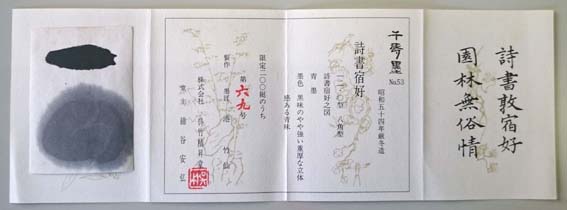 詩書敦宿好
園林無俗情
千寿墨
No.53
昭和五十四年厳冬造
詩書宿好
一二・〇型 八角型
詩書宿好之図
青墨
墨色 黒味のやや強い重厚な立体
感ある青味
限定二〇〇挺のうち
第六九号
製作 墨匠 港 竹仙
株式会社 呉竹精昇堂
綿谷安弘